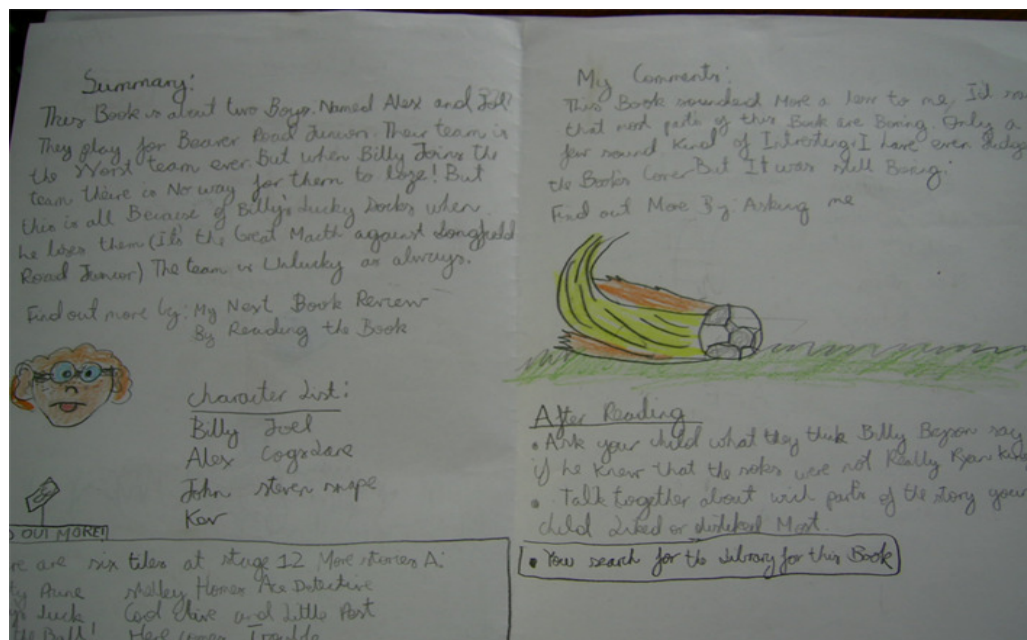 Summary:
This Book is about two Boys. Named Alex and Joel
They play for Beaver Road Juniors. Their team is
the Worst team ever. But when Billy Joins the
team there is No way for them to lose! But
this is all Because of Billy's Lucky Socks when
he loses them (It's the Great Macth against Longfield
Road Junior) The team is Unlucky as always.
Find out more by: My Next Book Review
By Reading the Book
Character List:
Billy Joel
Alex
John Steven
Kev
OUT MORE!
re are six tiles at stage 12 More stories A:
Prune Shelley Homes Ace Detective
Luck, Cool Clive and Little Pest
the Ball! Here comes Trouble
My Comments:
This Book sounded More a less to me, I'd
that most parts of this Book are Boring. Only a
few sound Kind of Intresting. I have even
the Book's Cover But It was still Boring!
Find out More By: Asking me
After Reading
• Ask your child what they think Billy say
if he knew that the soks were not Really Ryan
• Talk together about wich parts of the story your
child Liked or disliked Most.
• You search for the Library for this Book